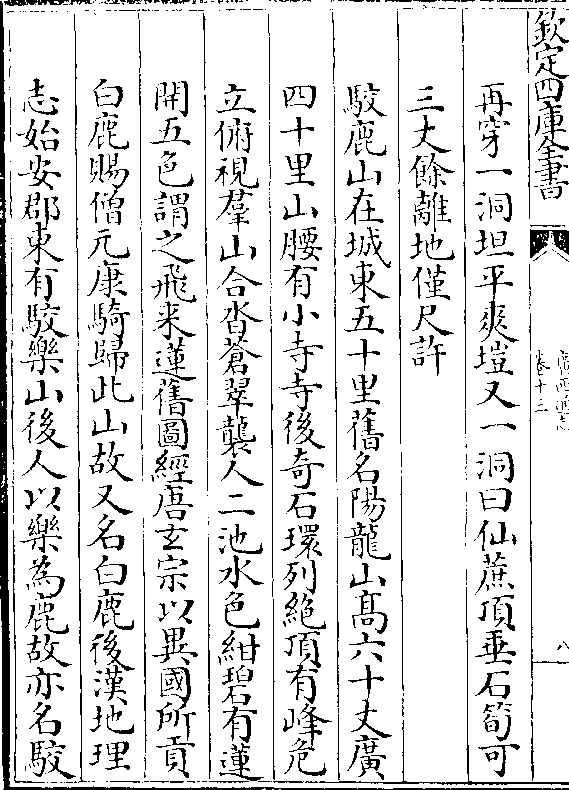 欽定四庫全書
廣西通志
卷十三
八
再穿一洞坦平爽塏又一洞曰仙蔗頂垂石筍可
三丈餘離地僅尺許
駮鹿山在城東五十里舊名陽龍山髙六十丈廣
四十里山腰有小寺寺後奇石環列絶頂有峰危
立俯視羣山合沓蒼翠襲人二池水色紺碧有蓮
開五色謂之飛来蓮舊圖經唐玄宗以異國所貢
白鹿賜僧元康騎歸此山故又名白鹿後漢地理
志始安郡東有駮樂山後人以樂為鹿故亦名駮